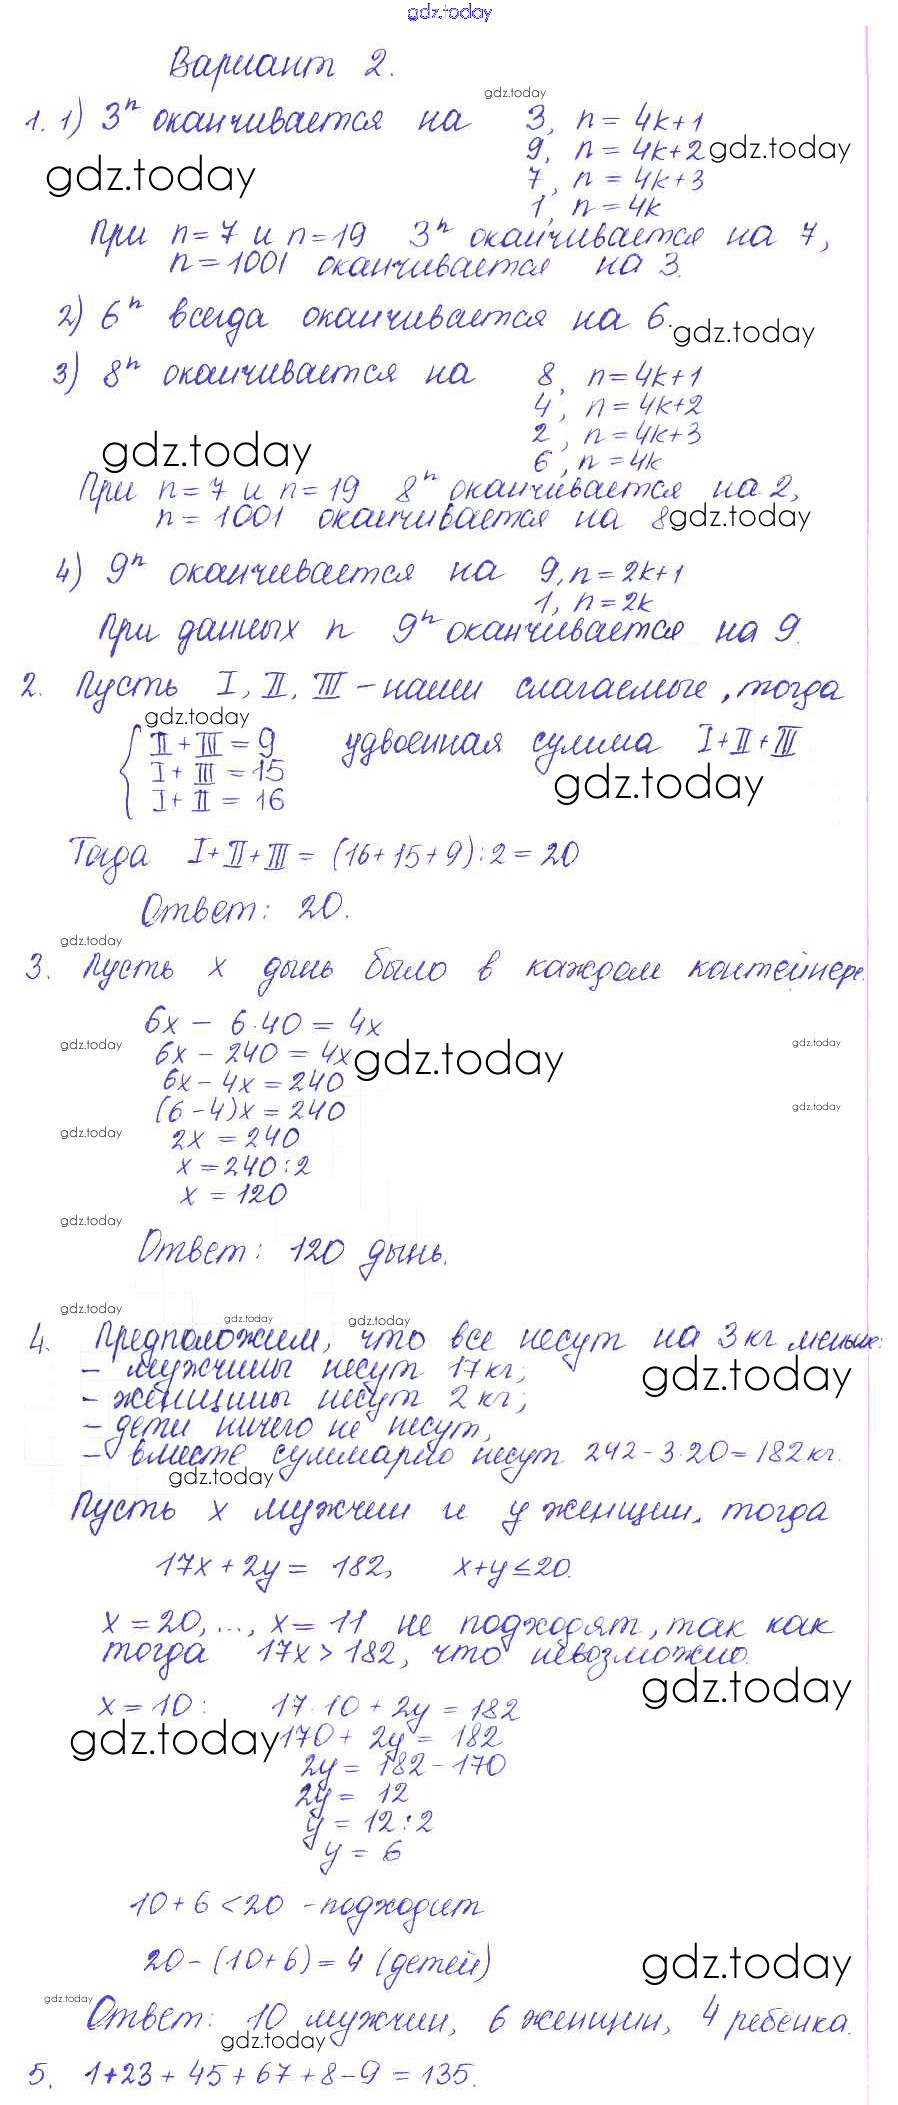 gdz.today
Вариант 2.
gdz.today
1. 1) 3ⁿ оканчивается на 3, n = 4k+1
9, n = 4k+2 gdz.today
gdz.today
7, n = 4k+3
1, n = 4k
При n=7 и n=19 3ⁿ оканчивается на 7,
n=1001 оканчивается на 3.
2) 6ⁿ всегда оканчивается на 6.
gdz.today
3) 8ⁿ оканчивается на 8, n=4k+1
4, n=4k+2
2, n=4k+3
gdz.today
6, n=4k
При n=7 и n=19 8ⁿ оканчивается на 2,
n=1001 оканчивается на 8 gdz.today
4) 9ⁿ оканчивается на 9, n=2k+1
1, n=2k
При данных n 9ⁿ оканчивается на 9.
2. Пусть I, II, III – наши слагаемые, тогда
gdz.today
II+III=9 удвоенная сумма I+II+III
I+III=15
gdz.today
I+II=16
Тогда I+II+III = (16+15+9):2=20
Ответ: 20.
gdz.today
3. Пусть x дынь было в каждом контейнере.
6x – 6·40 = 4x
gdz.today
gdz.today
6x – 240 = 4x gdz.today
6x – 4x = 240
(6–4)x = 240
gdz.today
gdz.today
2x = 240
x = 240:2
x = 120
gdz.today
Ответ: 120 дынь.
gdz.today
gdz.today
gdz.today
4. Предположим, что все несут на 3 кг меньше:
– мужчины несут 17 кг;
gdz.today
– женщины несут 2 кг;
– дети ничего не несут,
– вместе суммарно несут 242–3·20=182 кг.
gdz.today
Пусть x мужчин и y женщин, тогда
17x+2y = 182, x+y≤20.
x=20,..., x=11 не подходят, так как
тогда 17x>182, что невозможно.
gdz.today
x=10: 17·10+2y=182
gdz.today 170+2y=182
2y=182–170
2y=12
y=12:2
y=6
10+6<20 – подходит
20–(10+6)=4 (детей)
gdz.today
gdz.today
Ответ: 10 мужчин, 6 женщин, 4 ребёнка.
gdz.today
5. 1+23+45+67+8–9=135.